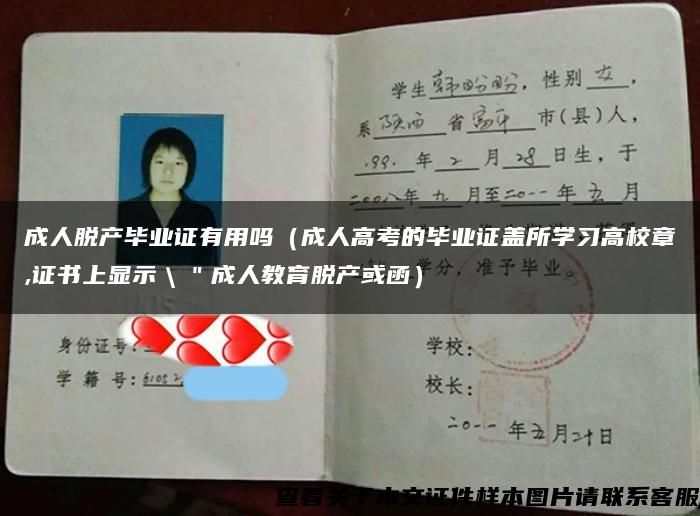 学生韩盼盼，性别女，
系陕西省富平市(县)人，
199.年2月28日生，于
二00八年九月至二0一一年五月
成人脱产毕业证有用吗（成人高考的毕业证盖所学习高校章
,证书上显示\"成人教育脱产或函）
学分，准予毕业。
身份证号:
学籍号:61052
学校:
校长:
二0一一年五月二十日
查看关于本文证件样本图片请联系客服